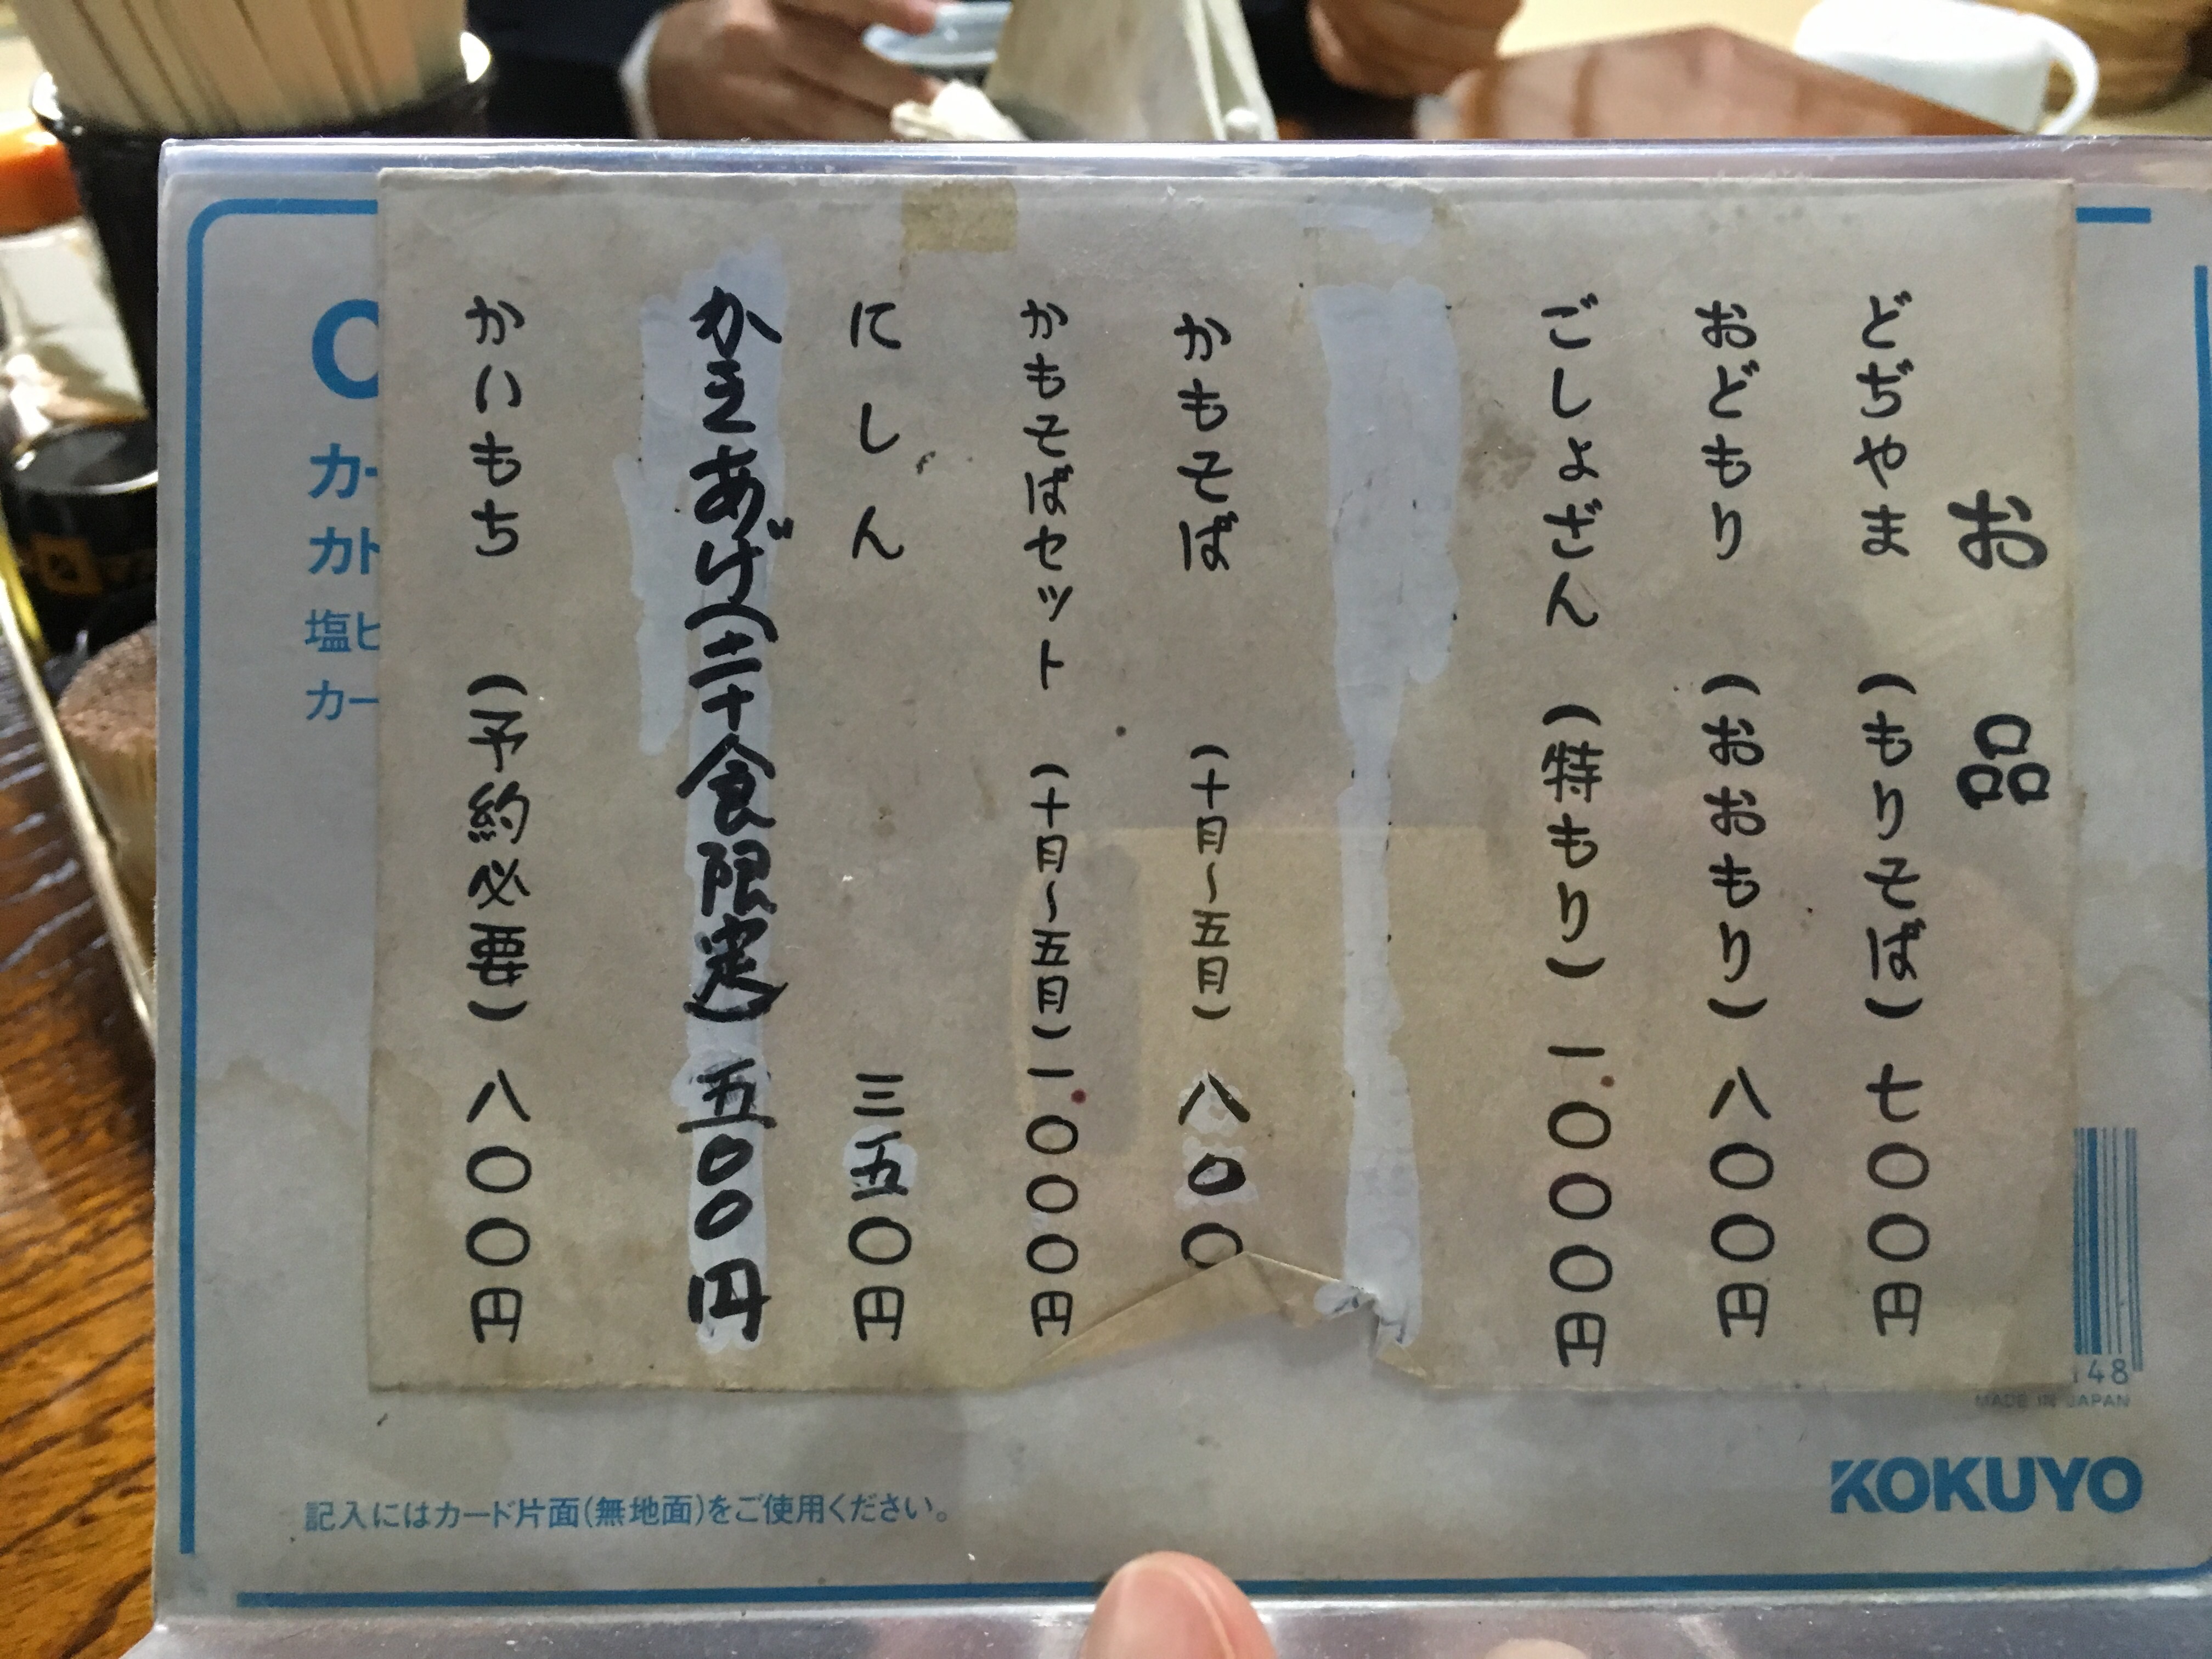 お品
どぢやま (もりそば) 七〇〇円
おどもり (おおもり) 八〇〇円
ごしょざん (特もり) 一.〇〇〇円
かもそば (十月〜五月) 八〇〇
かもそばセット (十月〜五月) 一.〇〇〇円
にしん 三五〇円
かきあげ(二十食限定) 五〇〇円
かいもち (予約必要) 八〇〇円
カー
カト
塩ビ
カー
148
MADE IN JAPAN
KOKUYO
記入にはカード片面(無地面)をご使用ください。